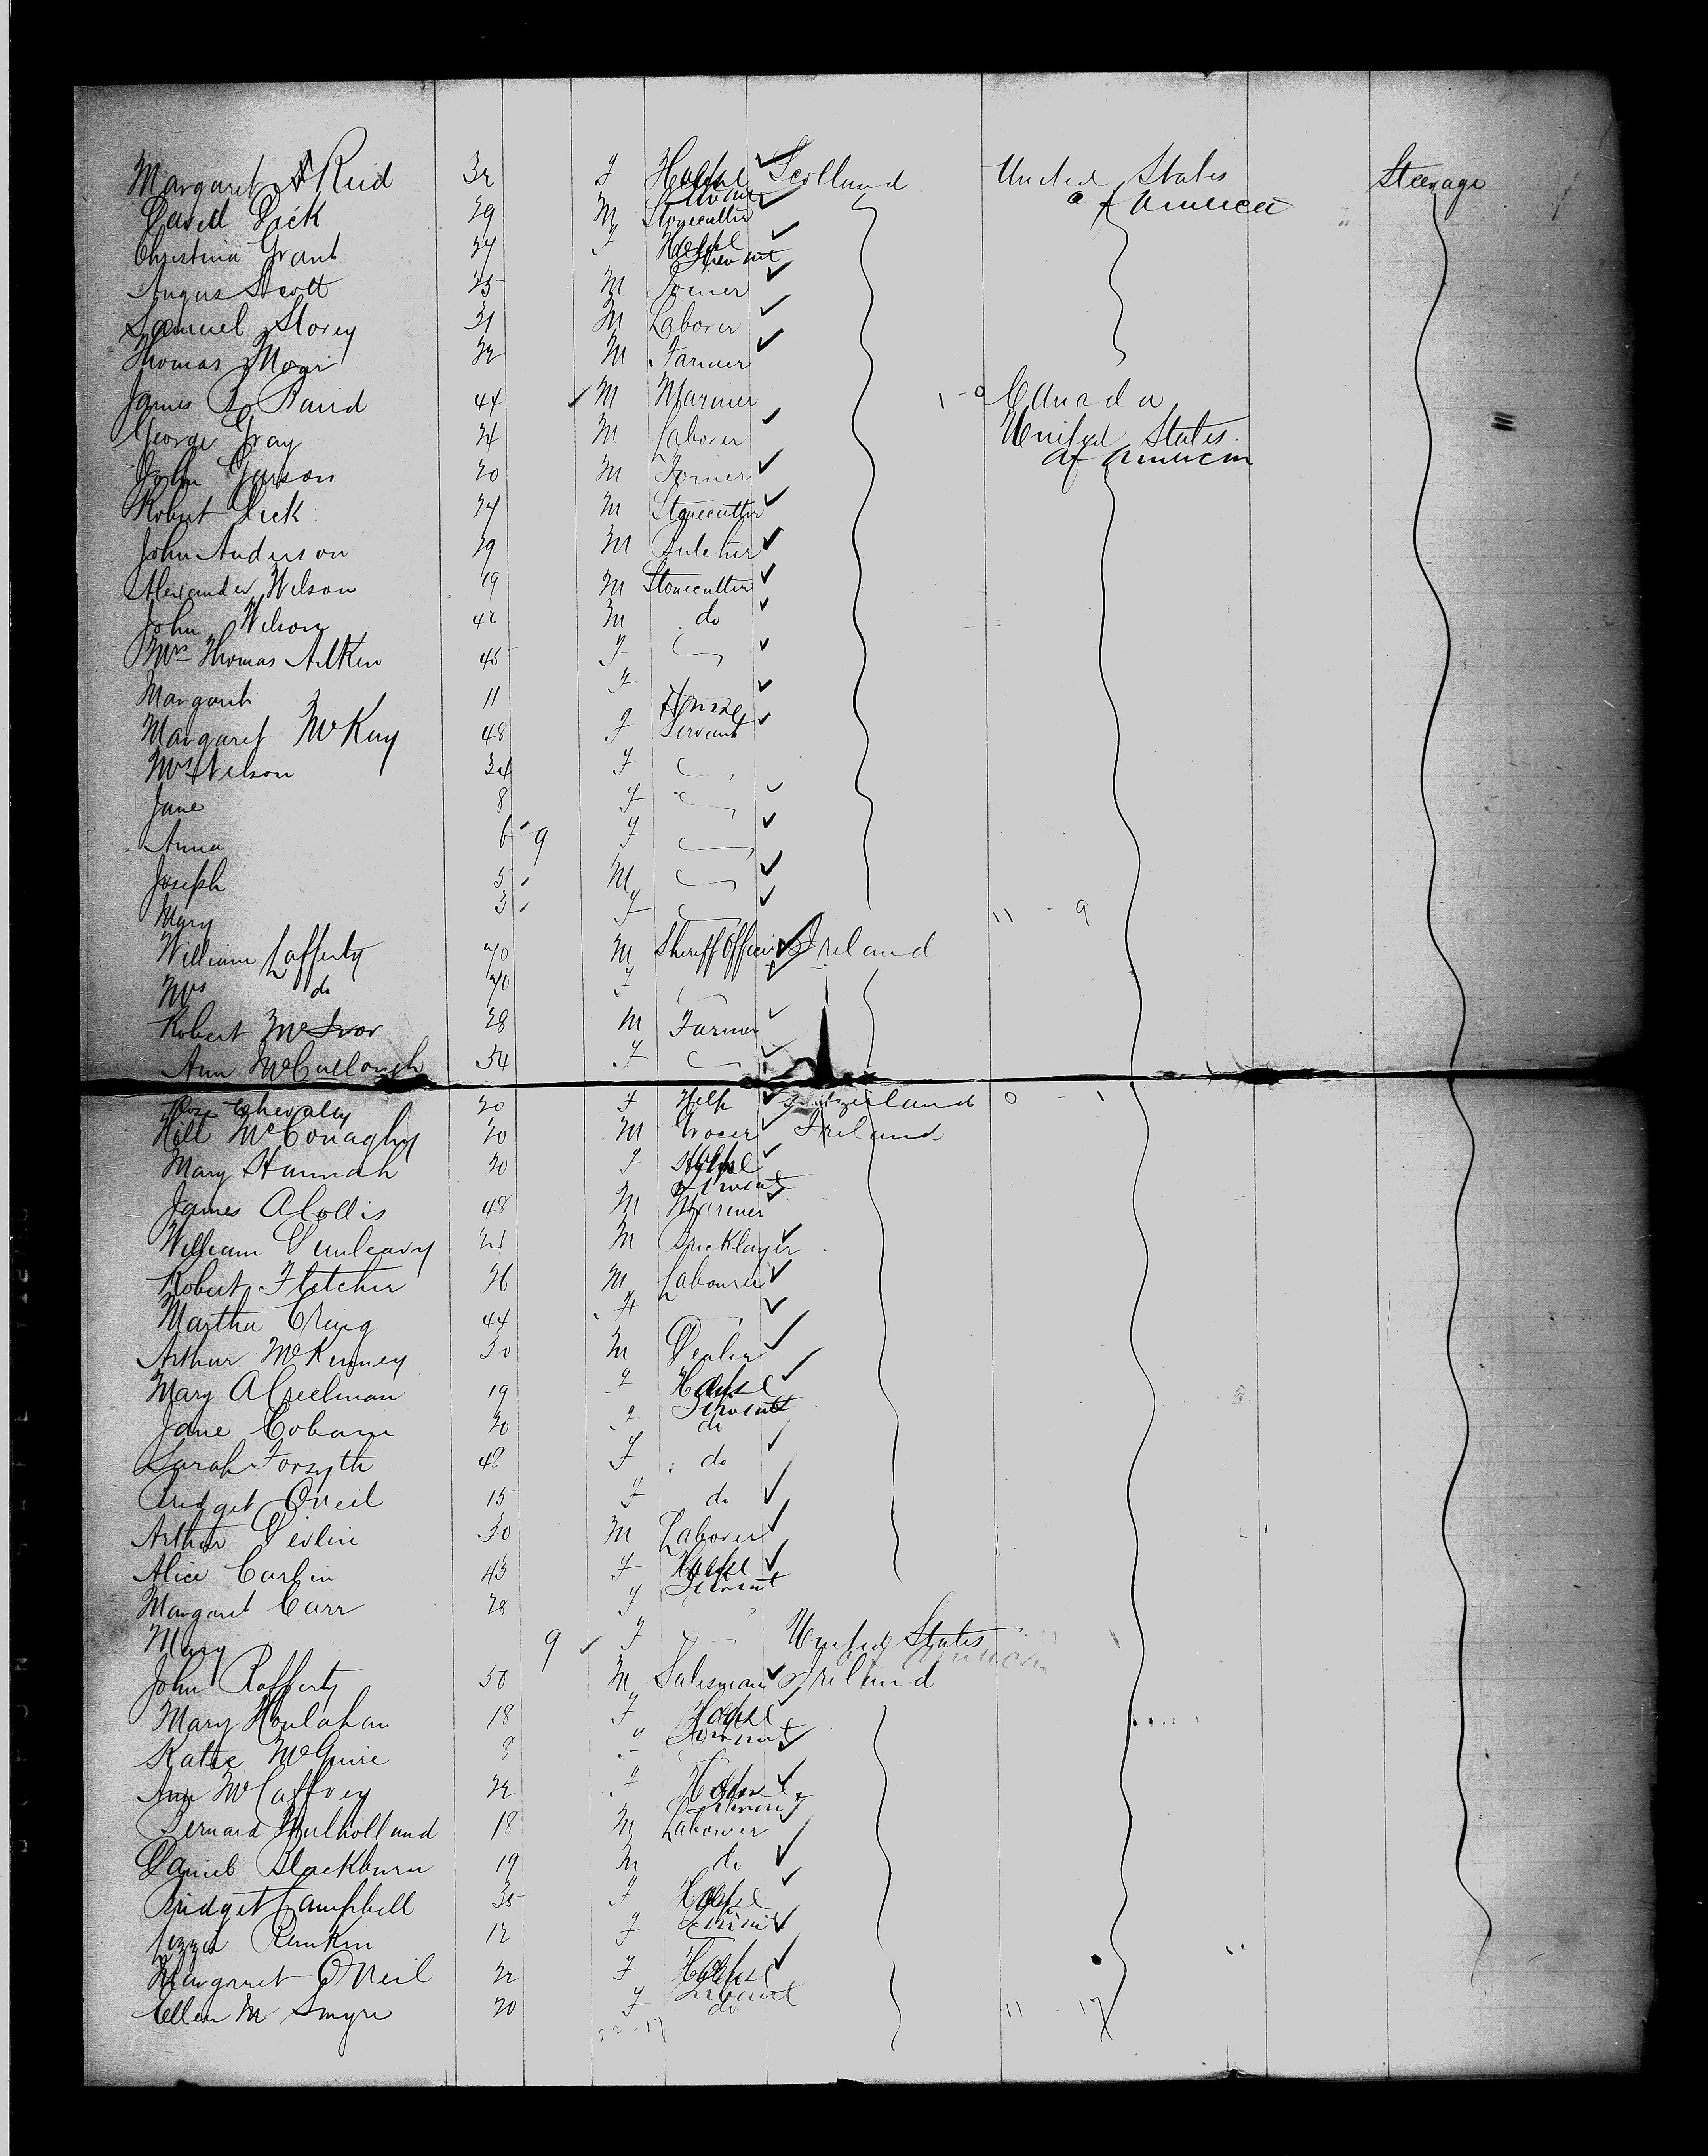 Margaret Reid 32 F House Servant Scotland United States of America Steerage
David Dick 29 M Stonecutter
Christina Grant 24 F House Servant
Angus Scott 25 M Joiner
Samuel Storey 31 M Laborer
Thomas 32 M Farmer
James Baird 44 M 1 - 0 Canada
George Gray 24 M Laborer United States of America
John 20 M Joiner
Robert Dick 24 M Stonecutter
John Anderson 29 M Butcher
Alexander Wilson 19 M Stonecutter
John Wilson 42 M do
Mrs Thomas Aitken 45 F
Margaret 11 F
Margaret McKay 48 F House Servant
Mrs 34 F
Jane 8 F
Anna 6 9 F
Joseph 5 M
Mary 3 F 11 - 9
William Lafferty 70 M Sheriff Officer Ireland
Mrs do 70 F
Robert McIvor 28 M Farmer
Ann McCullough 54 F
20 F Help Switzerland 0 - 1
McConaghy 20 M Grocer Ireland
Mary Hannah 20 F House Servant
James A Collis 48 M
William Dunleavy 21 M Bricklayer
Robert Fletcher 26 M Labourer
Martha Craig 44 F
Arthur McKinney 30 M Dealer
Mary A Creelman 19 F House Servant
Jane 20 F do
Sarah Forsyth 48 F do
Bridget O'Neil 15 F do
Arthur Devlin 30 M Laborer
Alice Carlin 43 F House Servant
Margaret Carr 28 F
Mary 9 F United States America
John Rafferty 50 M Salesman Ireland
Mary Houlahan 18 F House Servant
Katie McGuire 8 F
Ann McCaffrey 22 F House Servant
Bernard Mulholland 18 M Labourer
Daniel Blackburn 19 M do
Bridget Campbell 35 F House Servant
Lizzie Rankin 12 F
Margaret O'Neil 22 F House Servant
Ellen M Smyre 20 F do 11 - 17